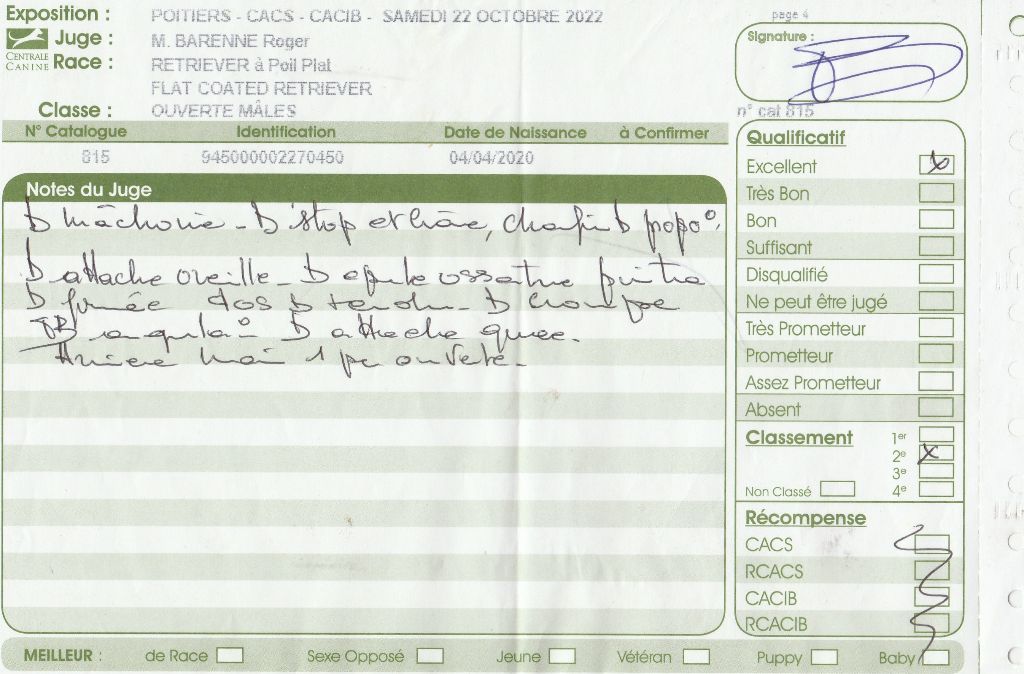 Exposition : POITIERS - CACS - CACIB - SAMEDI 22 OCTOBRE 2022
page 4
CENTRALE CANINE
Juge : M. BARENNE Roger
Race : RETRIEVER à Poil Plat
FLAT COATED RETRIEVER
Classe : OUVERTE MÂLES
Signature :
n° cat 815
N° Catalogue Identification Date de Naissance à Confirmer
815 945000002270450 04/04/2020
Notes du Juge
B mâchoire - B stop et crâne, B
B attache oreille - B ossature poitrine
B dos B tendu - B croupe
TB B attache queue.
1 peu ouverte.
Qualificatif
Excellent x
Très Bon
Bon
Suffisant
Disqualifié
Ne peut être jugé
Très Prometteur
Prometteur
Assez Prometteur
Absent
Classement 1er
2e x
3e
Non Classé 4e
Récompense
CACS
RCACS
CACIB
RCACIB
MEILLEUR : de Race Sexe Opposé Jeune Vétéran Puppy Baby